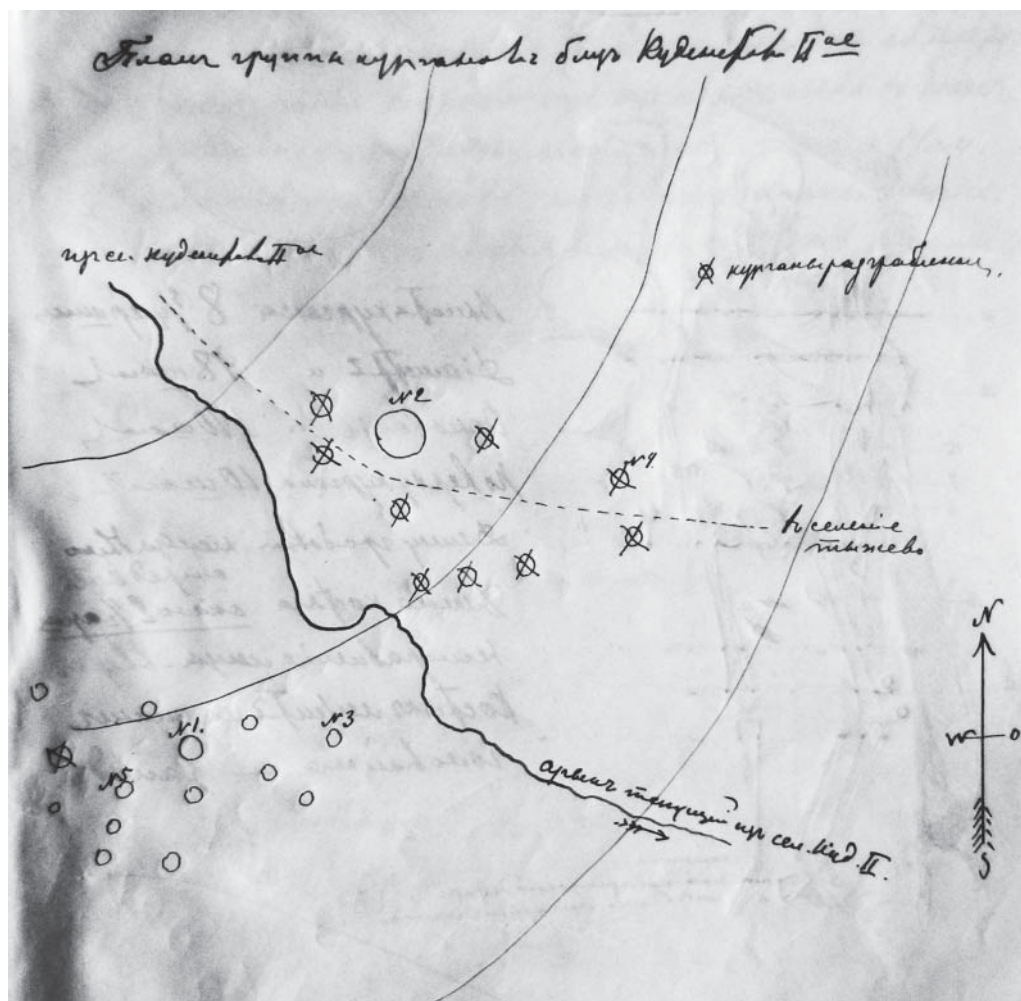 Планъ группы кургановъ близъ Куденетова II ое
из сел. Куденетова II ое
курганы разграблены.
N2
N4.
въ селеніе
тыжево
N
W O
S
N1.
N3
N5
арыкъ текущій изъ сел. Куд. II.